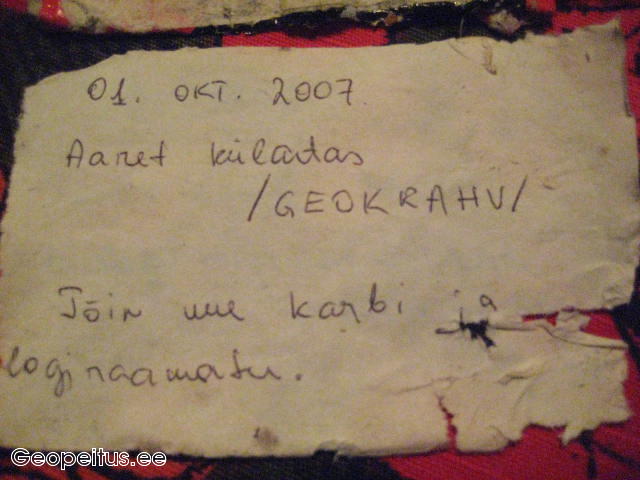 01. OKT. 2007
Aaret külastas
/GEOKRAHV/
Tõin uue karbi ja
logiraamatu.
Geopeitus.ee